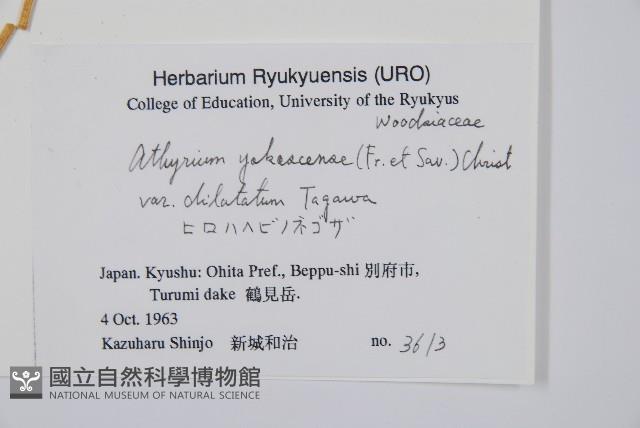 Herbarium Ryukyuensis (URO)
College of Education, University of the Ryukyus
Woodsiaceae
Athyrium yokoscense (Fr. et Sav.) Christ
var. dilatatum Tagawa
ヒロハヘビノネゴザ
Japan. Kyushu: Ohita Pref., Beppu-shi 別府市,
Turumi dake 鶴見岳.
4 Oct. 1963
Kazuharu Shinjo 新城和治 no. 3613
國立自然科學博物館
NATIONAL MUSEUM OF NATURAL SCIENCE